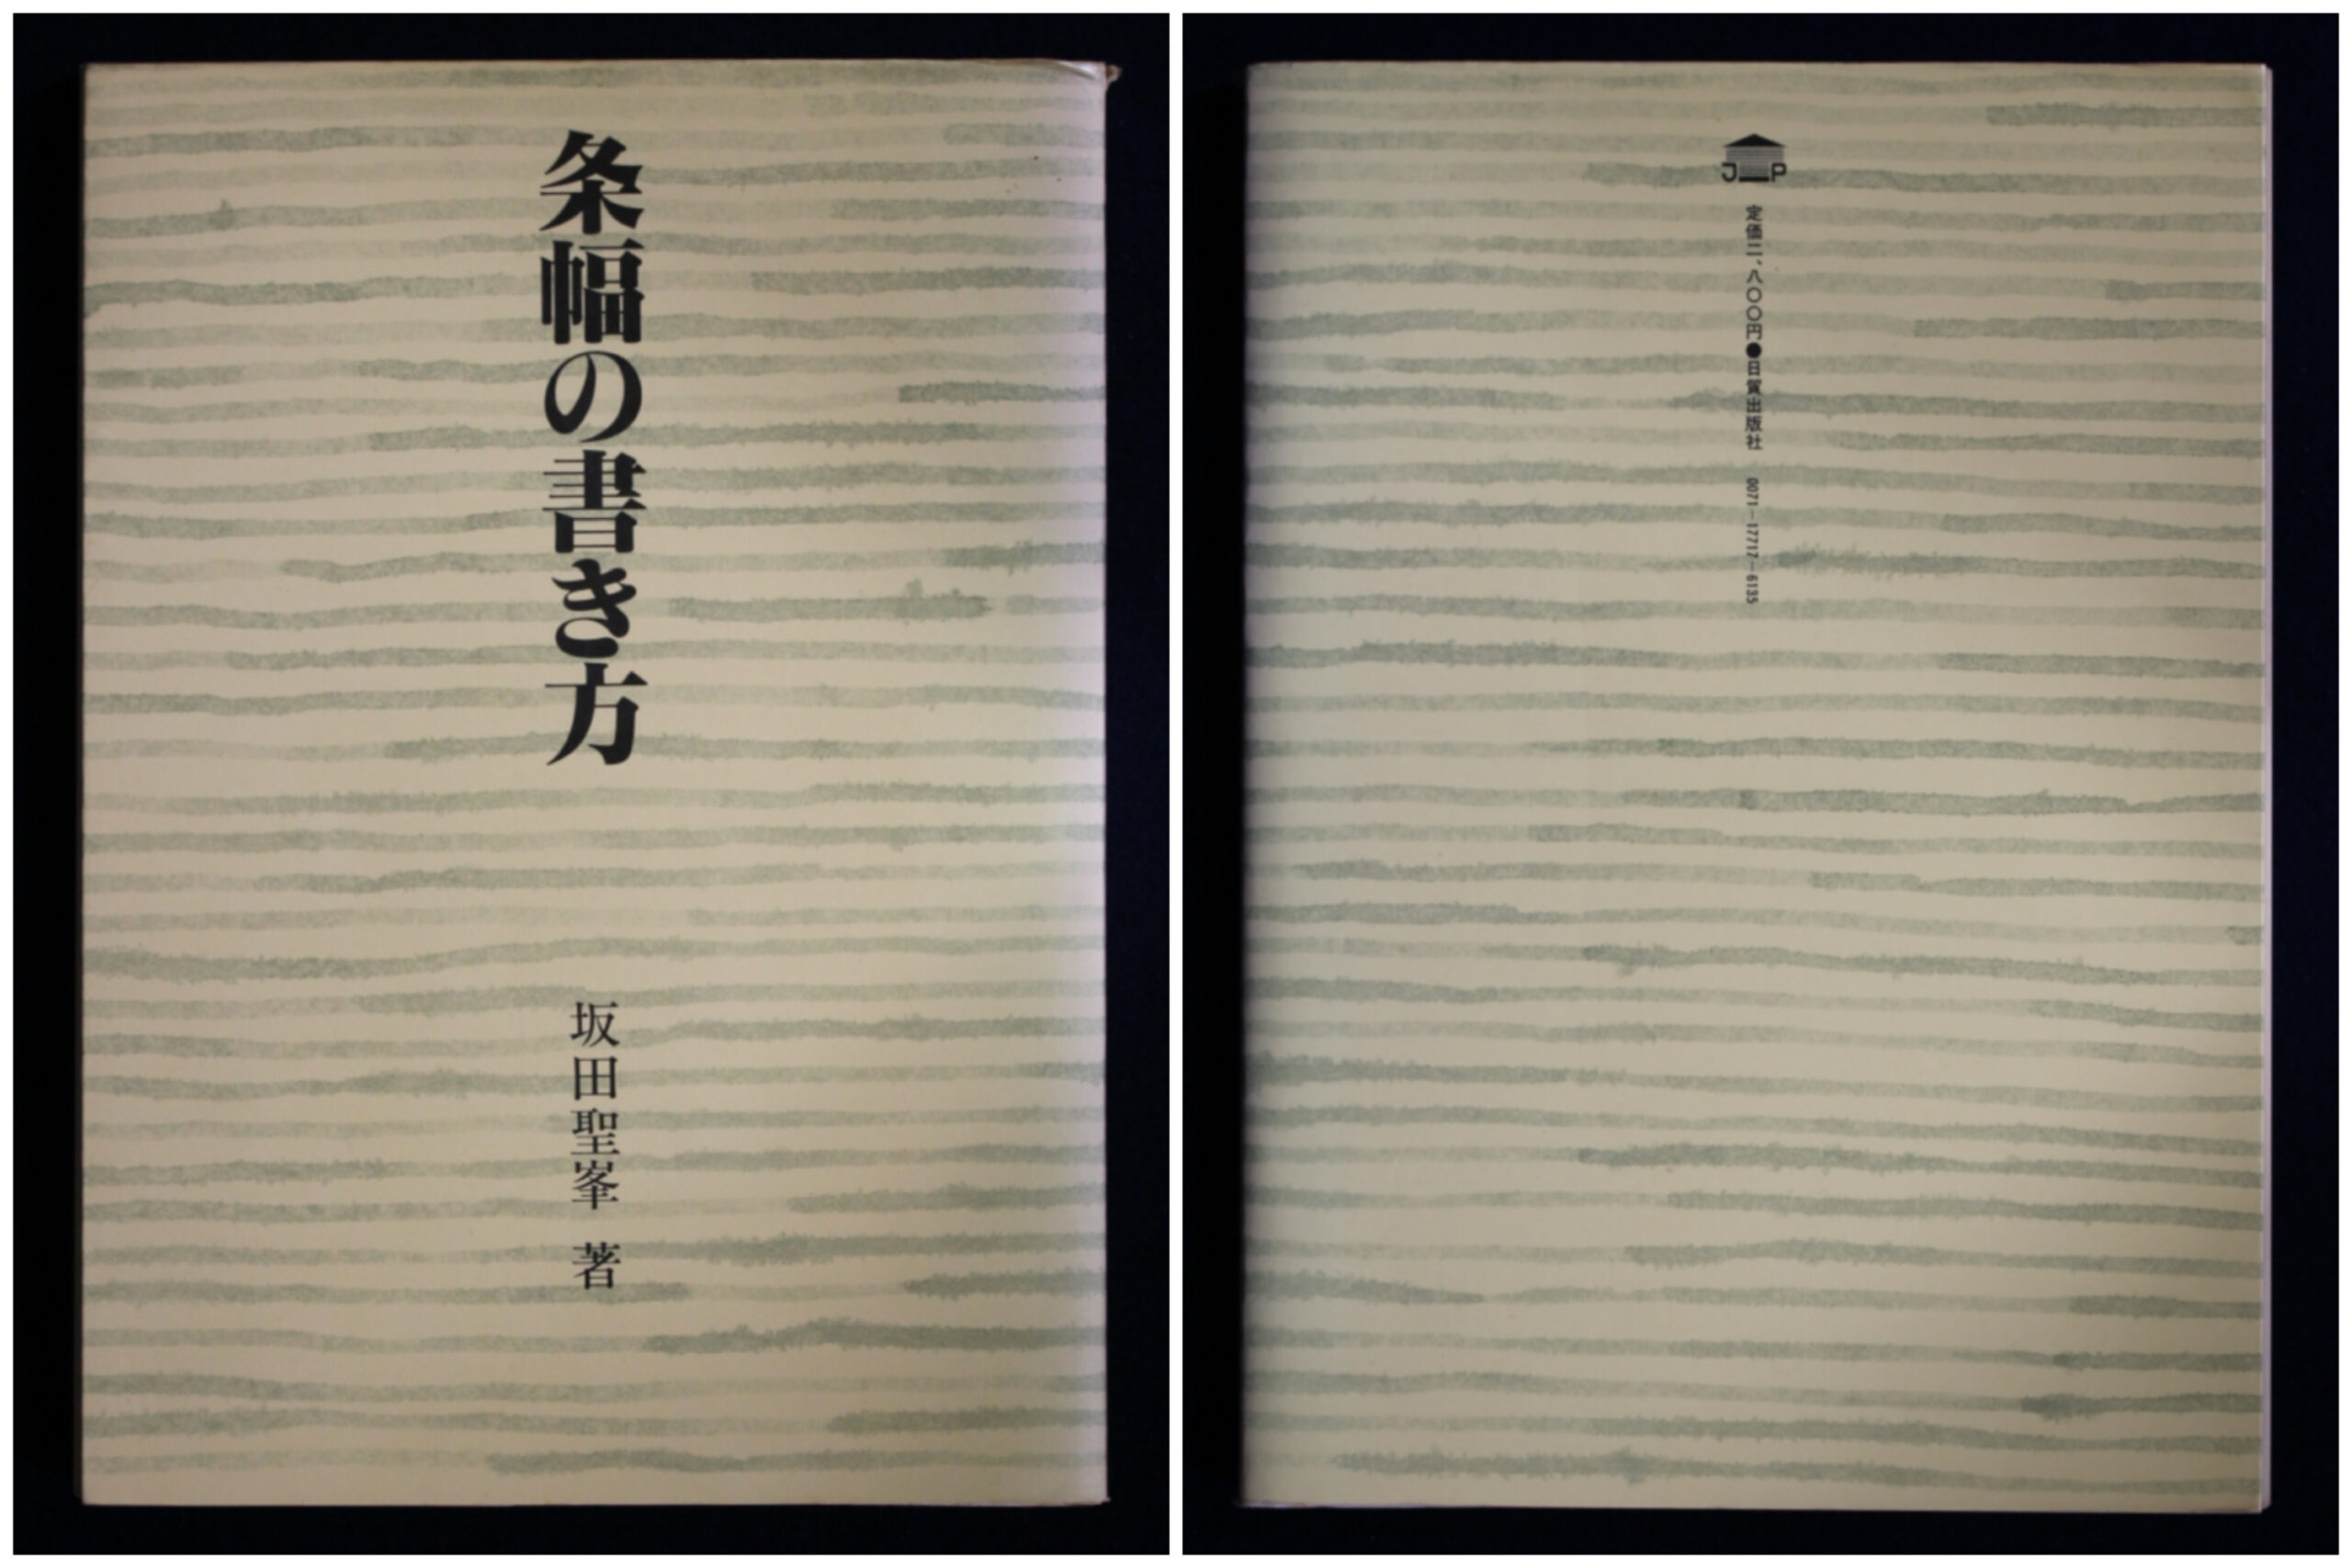 条幅の書き方
坂田聖峯 著
JP
定価二、八〇〇円●日貿出版社 0071―17717―6135